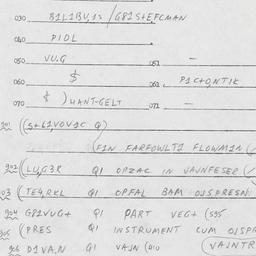 030 B1L1BU,1S / G81S+EFCMAN
040 PIDL
050 VU.G 051 —
060 $ 061 P1C+O,NTIK
070 $ ) HANT-GELT 071 —
901 ((S+61VOV1C Q)
(F1N FARFOWLT1 FLOWM1N (
902 (LU,G3R Q1 OPZAC IN VAJNFESER (
03 (TE4,RKL Q1 OPFAL BAM OJSPRESN
904 GP1VUG+ Q1 PART VEG+ (595
905 (PRES Q1 INSTRUMENT CUM OJSPR
906 D1VA,N Q1 VAJN (010 (VAJNTR